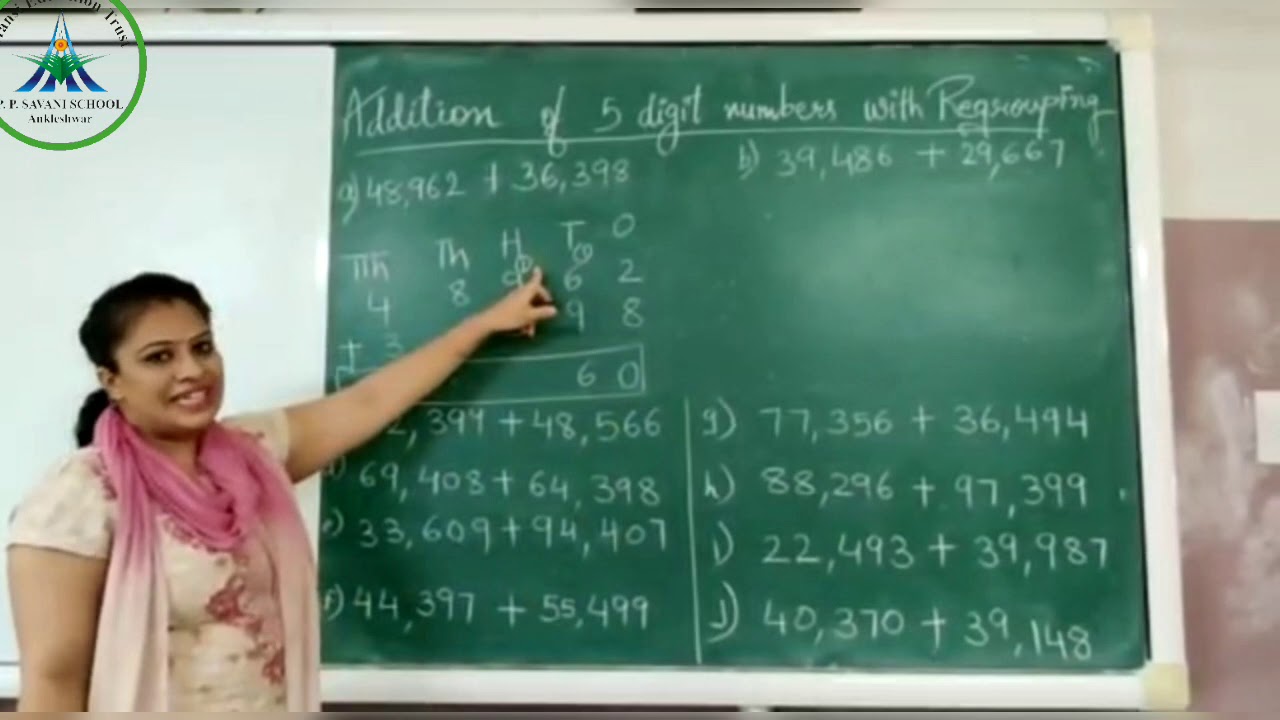 P. P. SAVANI SCHOOL
Ankleshwar
Addition of 5 digit numbers with Regrouping
a) 48,962 + 36,398
b) 39,486 + 29,667
TTh Th H T O
1 1
4 8 9 6 2
+ 3 9 8
6 0
,399 + 48,566
69,408 + 64,398
e) 33,609 + 94,407
f) 44,397 + 55,499
g) 77,356 + 36,494
h) 88,296 + 97,399
i) 22,493 + 39,987
j) 40,370 + 39,148